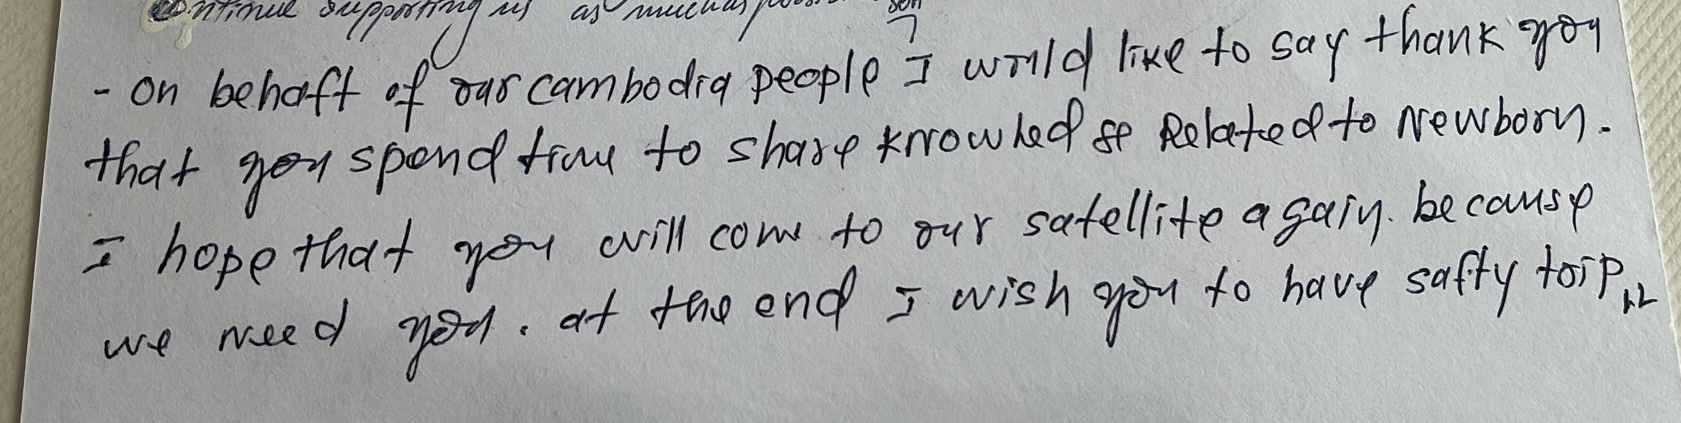 continue supporting us as much as
- on behaft of our cambodia people I would like to say thank you
that you spend time to share knowledge Related to Newborn.
I hope that you will come to our satellite again. because
we need you. at the end I wish you to have safty torp